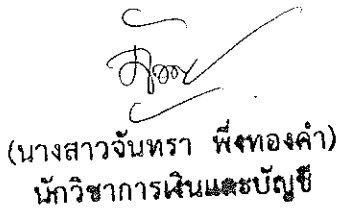 (นางสาวจันทรา พึ่งทองคำ)
นักวิชาการเงินและบัญชี